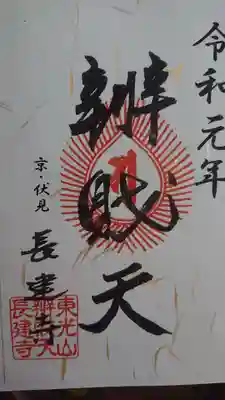 令和元年
辨戝天
京・伏見
長建寺
東光山
辨財天
長建寺